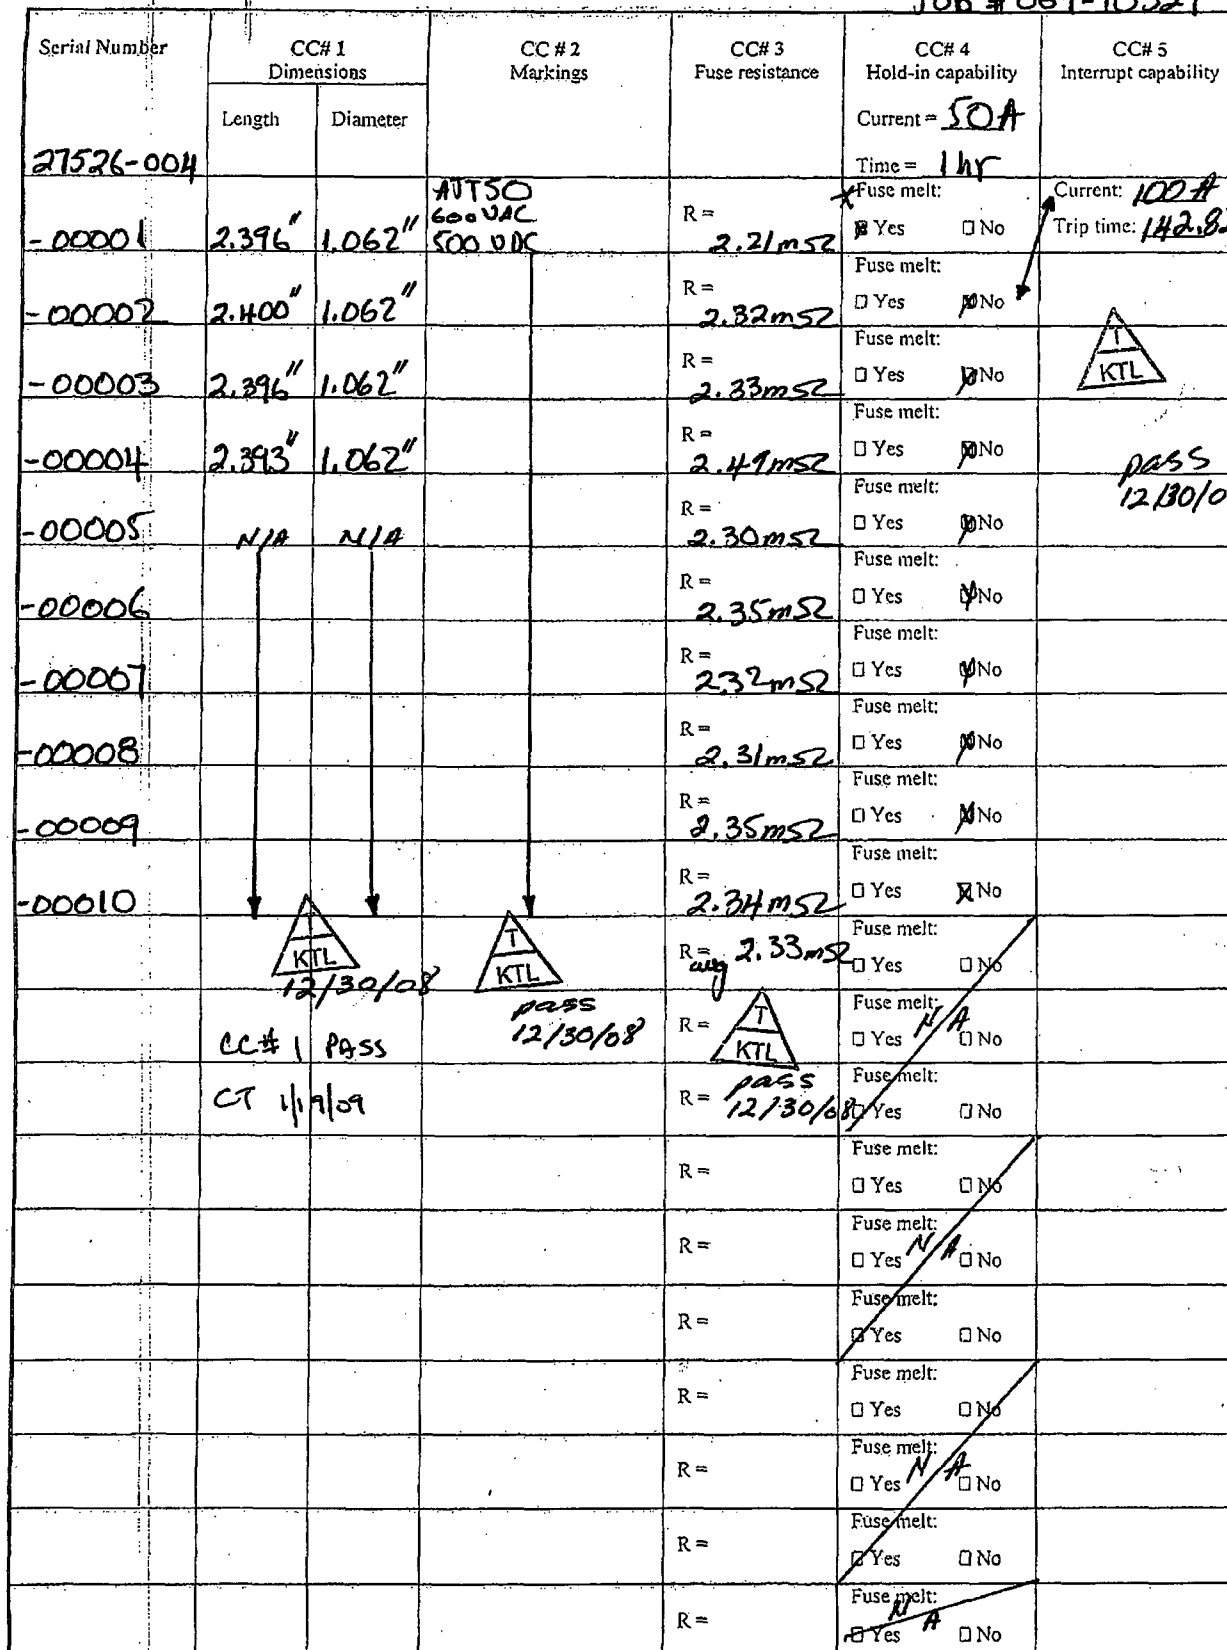 Serial Number
CC# 1
Dimensions
CC # 2
Markings
CC# 3
Fuse resistance
CC# 4
Hold-in capability
CC# 5
Interrupt capability
Length
Diameter
Current = 50A
27526-004
Time = 1 hr
-00001
2.396"
1.062"
AJT50
600 VAC
500 VDC
R =
2.21mΩ
Fuse melt:
Yes No
Current: 100 A
Trip time: 142.82
-00002
2.400"
1.062"
R =
2.32mΩ
Fuse melt:
Yes No
-00003
2.396"
1.062"
R =
2.33mΩ
Fuse melt:
Yes No
T
KTL
-00004
2.393"
1.062"
R =
2.49mΩ
Fuse melt:
Yes No
pass
12/30/0
-00005
N/A
N/A
R =
2.30mΩ
Fuse melt:
Yes No
-00006
R =
2.35mΩ
Fuse melt:
Yes No
-00007
R =
2.32mΩ
Fuse melt:
Yes No
-00008
R =
2.31mΩ
Fuse melt:
Yes No
-00009
R =
2.35mΩ
Fuse melt:
Yes No
-00010
R =
2.34mΩ
Fuse melt:
Yes No
T
KTL
12/30/08
T
KTL
R = avg 2.33mΩ
Fuse melt:
Yes No
CC# 1 PASS
pass
12/30/08
R =
T
KTL
Fuse melt:
N/A
Yes No
CT 1/19/09
R =
pass
12/30/08
Fuse melt:
Yes No
R =
Fuse melt:
Yes No
R =
Fuse melt:
N/A
Yes No
R =
Fuse melt:
Yes No
R =
Fuse melt:
Yes No
R =
Fuse melt:
N/A
Yes No
R =
Fuse melt:
Yes No
R =
Fuse melt:
N A
Yes No